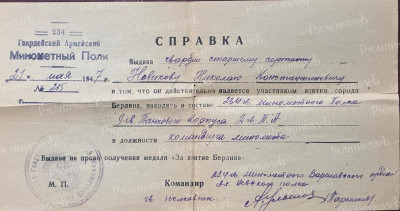 234
Гвардейский Армейский
Минометный Полк
21 мая 1947 г.
№ 215
СПРАВКА
Выдана гвардии старшему сержанту
Новикову Николаю Константиновичу
в том, что он действительно является участником взятия города
Берлина, находясь в составе 234 гв. минометного Полка
Танкового Корпуса
в должности командира миномета
Выдана на право получения медали «За взятие Берлина»
М. П.
Командир 234 гв. минометного Варшавского ордена
полка
гв. полковник